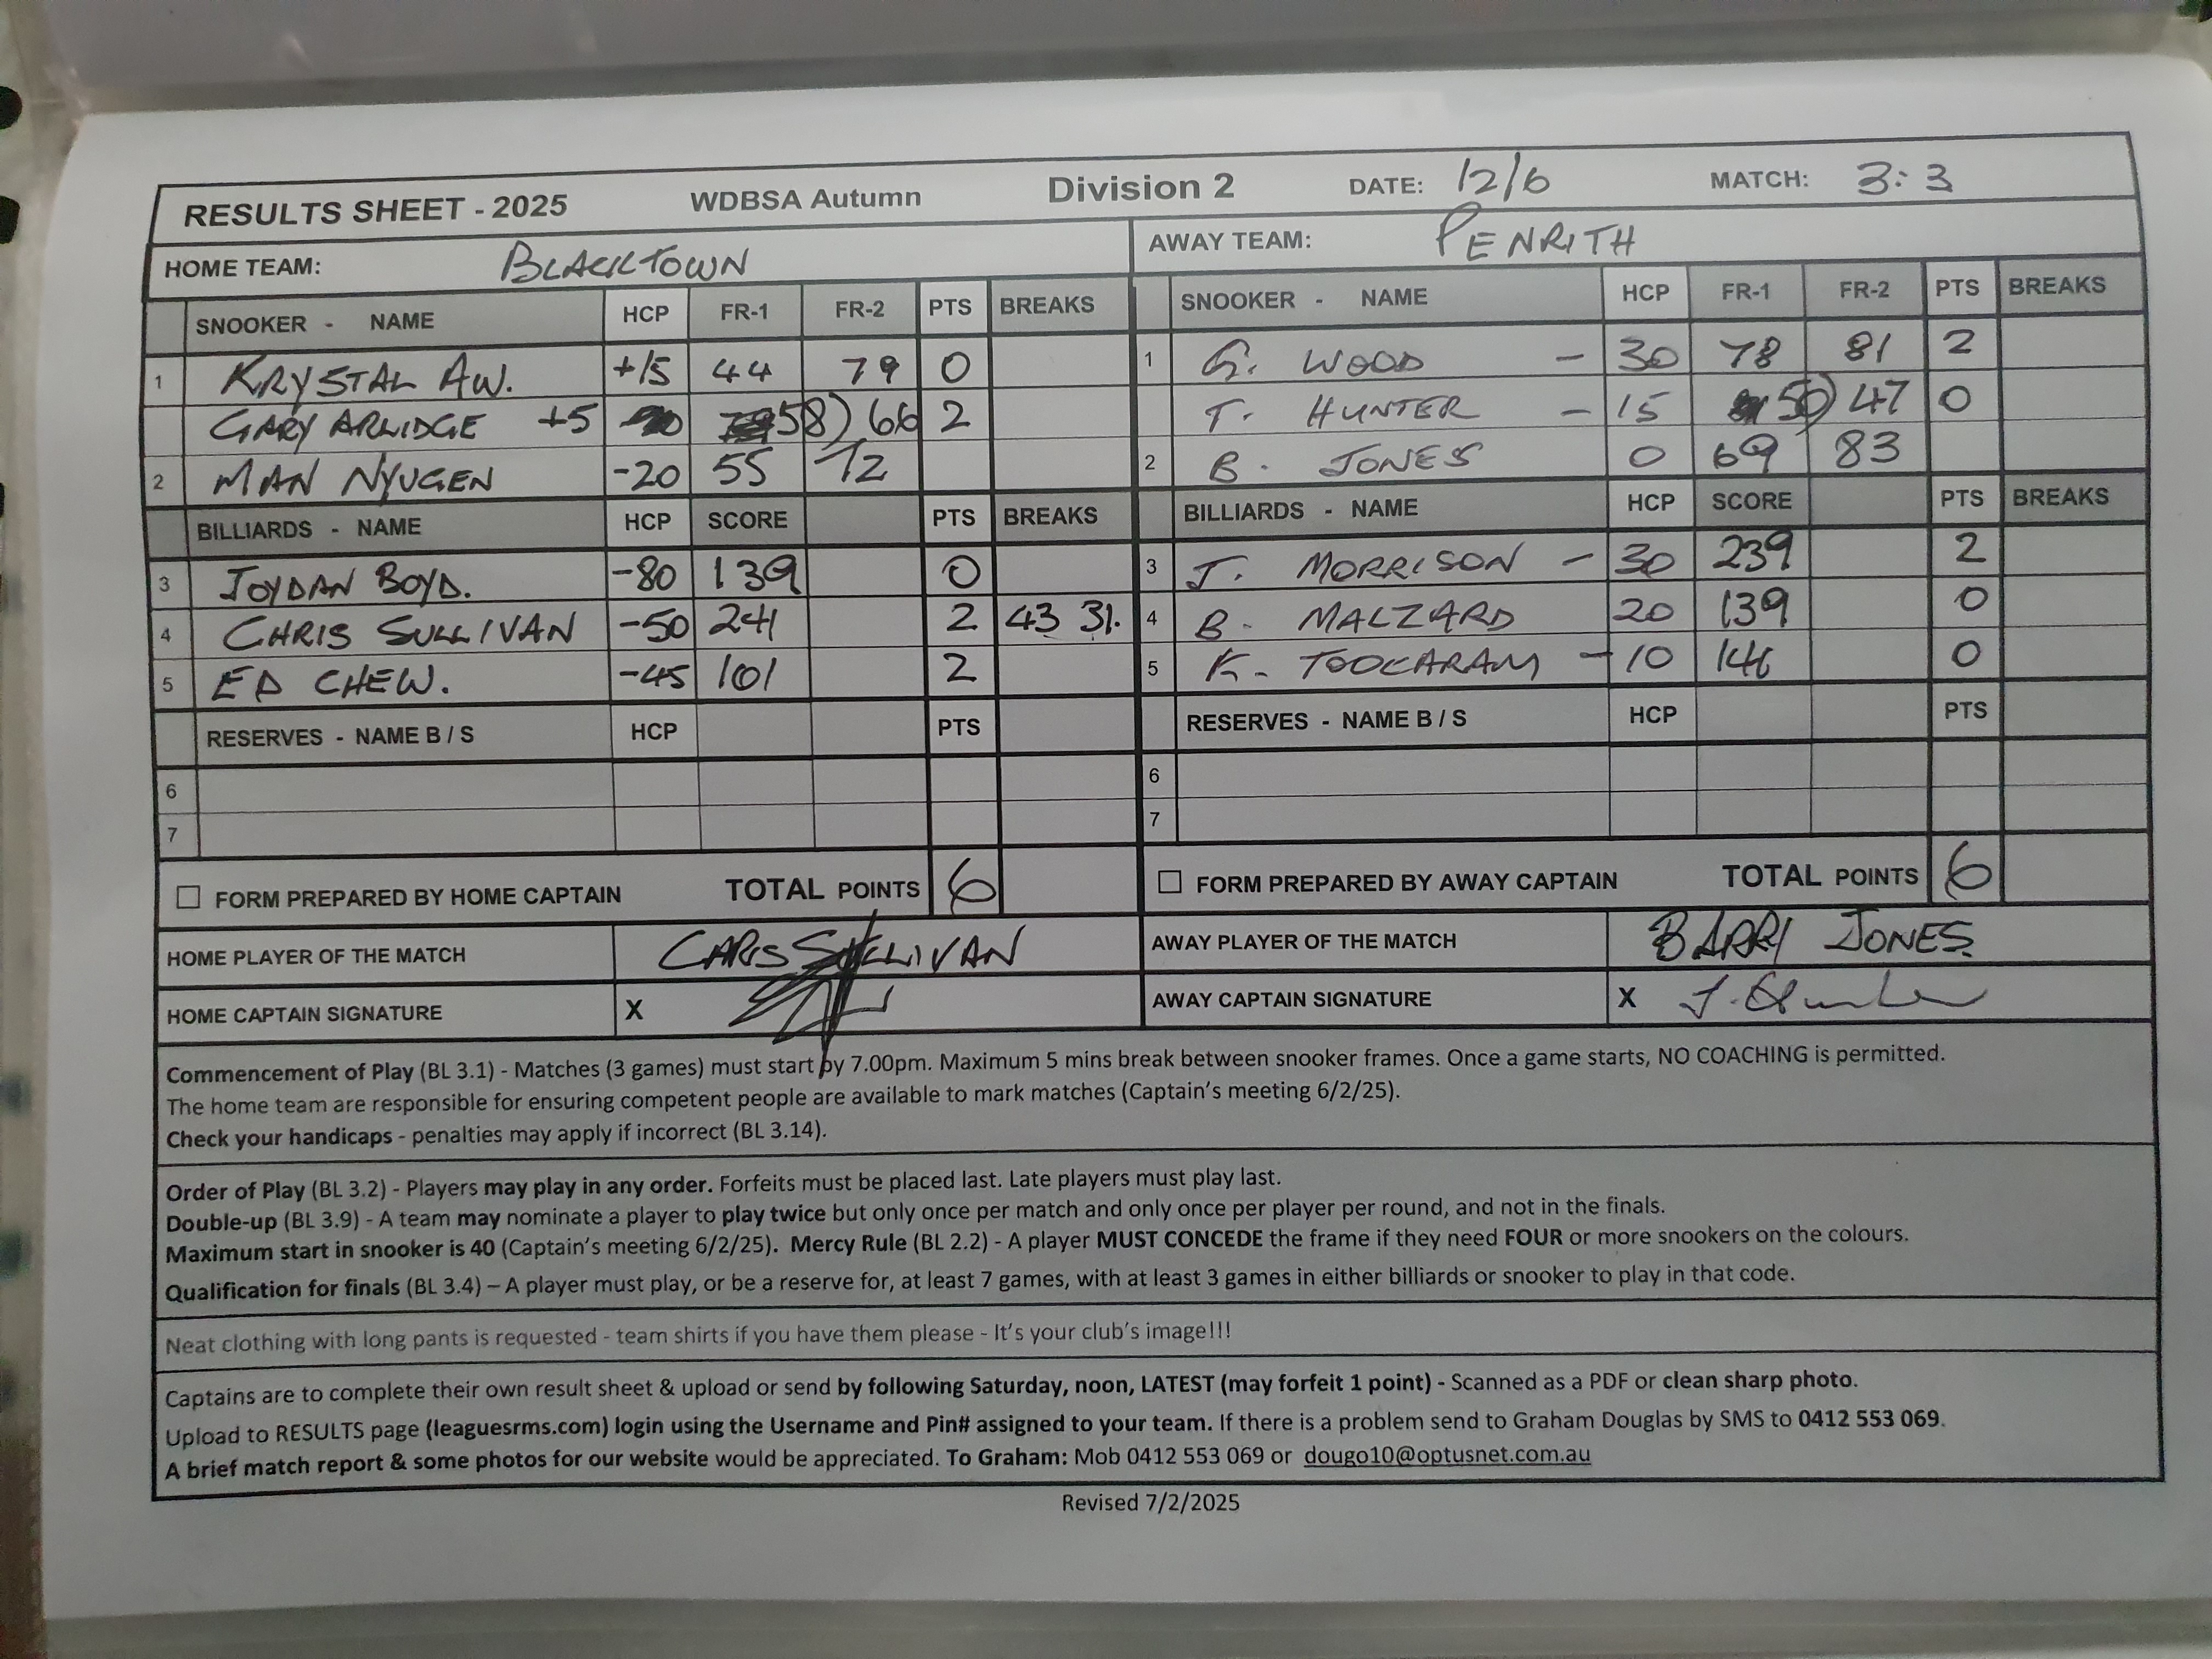 RESULTS SHEET - 2025 WDBSA Autumn Division 2 DATE: 12/6 MATCH: 3:3
HOME TEAM: BLACKTOWN AWAY TEAM: PENRITH
SNOOKER - NAME HCP FR-1 FR-2 PTS BREAKS SNOOKER - NAME HCP FR-1 FR-2 PTS BREAKS
1 KRYSTAL AW. +15 44 79 0 1 G. WOOD - 30 78 81 2
GARY ARLIDGE +5 58) 66 2 T. HUNTER - 15 50) 47 0
2 MAN NYUGEN -20 55 72 2 B. JONES 0 69 83
BILLIARDS - NAME HCP SCORE PTS BREAKS BILLIARDS - NAME HCP SCORE PTS BREAKS
3 JOYDAN BOYD. -80 139 0 3 J. MORRISON - 30 239 2
4 CHRIS SULLIVAN -50 241 2 43 31. 4 B. MALZARD 20 139 0
5 ED CHEW. -45 101 2 5 K. TOOLARAM - 10 146 0
RESERVES - NAME B / S HCP PTS RESERVES - NAME B / S HCP PTS
6 6
7 7
☐ FORM PREPARED BY HOME CAPTAIN TOTAL POINTS 6 ☐ FORM PREPARED BY AWAY CAPTAIN TOTAL POINTS 6
HOME PLAYER OF THE MATCH CHRIS SULLIVAN AWAY PLAYER OF THE MATCH BARRY JONES
HOME CAPTAIN SIGNATURE X AWAY CAPTAIN SIGNATURE X
Commencement of Play (BL 3.1) - Matches (3 games) must start by 7.00pm. Maximum 5 mins break between snooker frames. Once a game starts, NO COACHING is permitted.
The home team are responsible for ensuring competent people are available to mark matches (Captain's meeting 6/2/25).
Check your handicaps - penalties may apply if incorrect (BL 3.14).
Order of Play (BL 3.2) - Players may play in any order. Forfeits must be placed last. Late players must play last.
Double-up (BL 3.9) - A team may nominate a player to play twice but only once per match and only once per player per round, and not in the finals.
Maximum start in snooker is 40 (Captain's meeting 6/2/25). Mercy Rule (BL 2.2) - A player MUST CONCEDE the frame if they need FOUR or more snookers on the colours.
Qualification for finals (BL 3.4) – A player must play, or be a reserve for, at least 7 games, with at least 3 games in either billiards or snooker to play in that code.
Neat clothing with long pants is requested - team shirts if you have them please - It's your club's image!!!
Captains are to complete their own result sheet & upload or send by following Saturday, noon, LATEST (may forfeit 1 point) - Scanned as a PDF or clean sharp photo.
Upload to RESULTS page (leaguesrms.com) login using the Username and Pin# assigned to your team. If there is a problem send to Graham Douglas by SMS to 0412 553 069.
A brief match report & some photos for our website would be appreciated. To Graham: Mob 0412 553 069 or dougo10@optusnet.com.au
Revised 7/2/2025